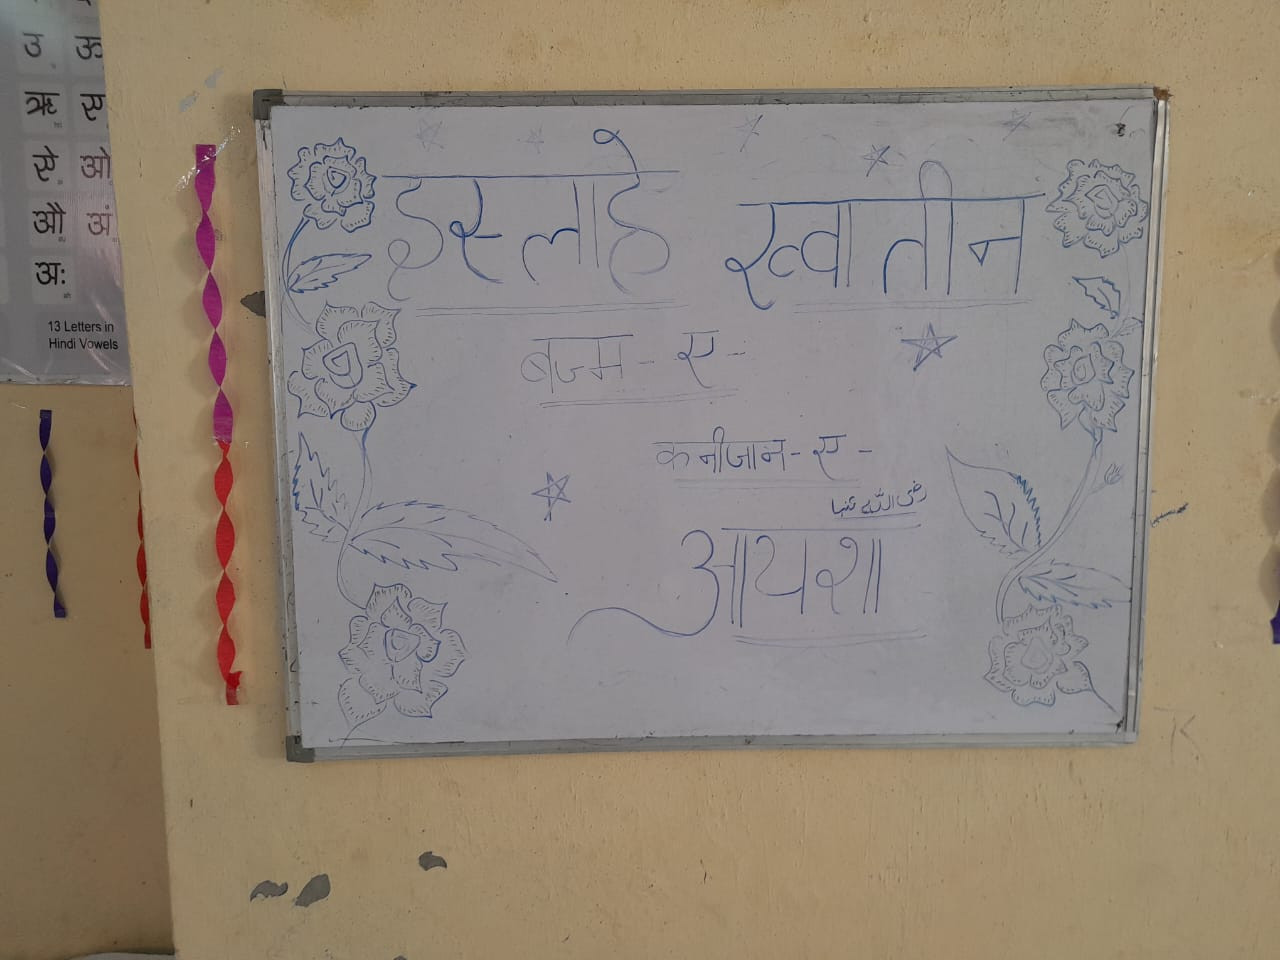 उ ऊ
ऋ ए
से ओ
औ अं
अः
13 Letters in
Hindi Vowels
इस्लाहे ख्वातीन
बज्म - ए -
कनीजान - ए -
رضی اللہ عنہا
आयशा